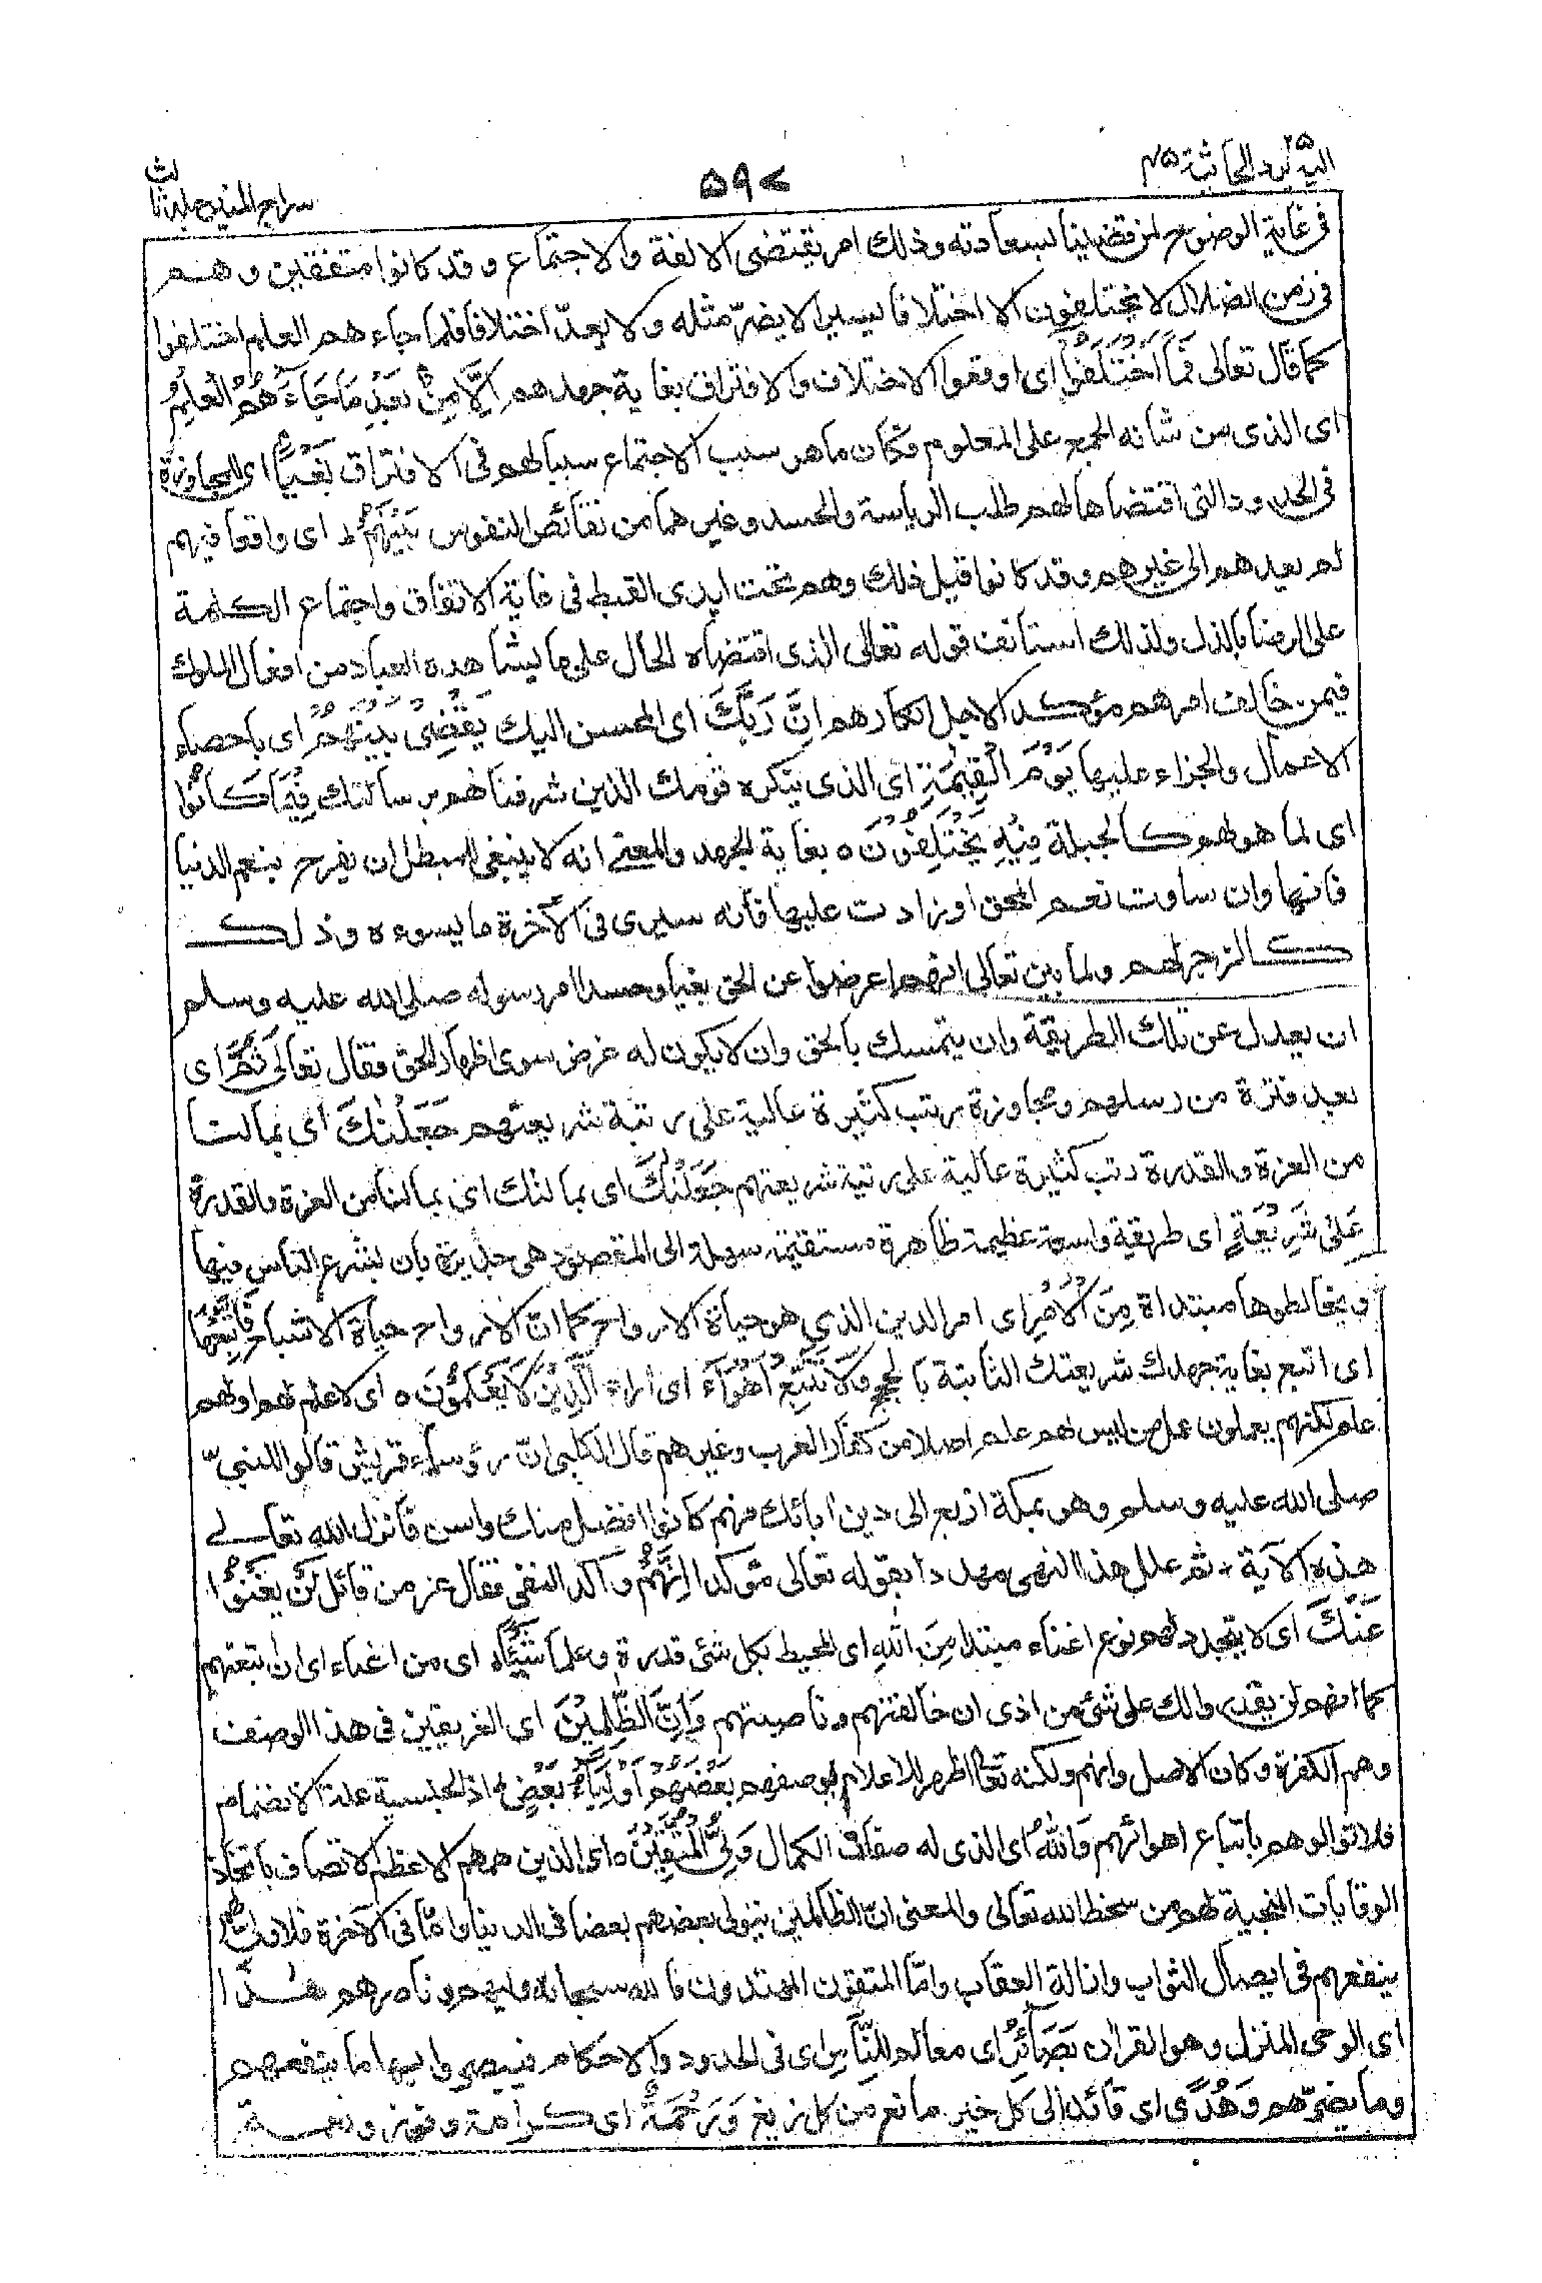 اليه يرد الجاثية ٤٥
٥٩٧
سراج المنير جلد ثالث
فى غاية الوضوح لمن قضينا بسعادته وذلك امر يقتضى الالفة والاجتماع وقد كانوا متفقين وهم
فى زمن الضلال لا يختلفون الا اختلافا يسيرا لا يضرّ مثله ولا يعدّ اختلافا فلما جاءهم العلم اختلفوا
كما قال تعالى فَمَا اخْتَلَفُوْا اى اوقعوا الاختلاف والافتراق بغاية جهدهم اِلَّا مِنْ بَعْدِ مَا جَآءَهُمُ الْعِلْمُ
اى الذى من شانه الجمع على المعلوم فكان ما هو سبب الاجتماع سببا لهم فى الافتراق بَغْيًا اى للمجاوزة
فى الحدود التى اقتضاها لهم طلب الرياسة والحسد وغيرهما من نقائص النفوس بَيْنَهُمْ ط اى واقعا فيهم
لم يعدهم الى غيرهم وقد كانوا قبل ذلك وهم تحت ايدى القبط فى غاية الاتفاق واجتماع الكلمة
على الرضا بالذل ولذلك استانف قوله تعالى الذى اقتضاه الحال على ما يشاهده العباد من افعال الملوك
فيمن خالف امرهم مؤكدا لاجل انكارهم اِنَّ رَبَّكَ اى المحسن اليك يَقْضِىْ بَيْنَهُمْ اى باحصاء
الاعمال والجزاء عليها يَوْمَ الْقِيٰمَةِ اى الذى ينكره قومك الذين شرفناهم برسالتك فِيْمَا كَانُوْا
اى لما هو لهم كالجبلة فِيْهِ يَخْتَلِفُوْنَ ٥ بغاية الجهد والمعنى انه لا ينبغى للمبطل ان يفرح بنعم الدنيا
فانها وان ساوت نعم المحق او زادت عليها فانه سيرى فى الآخرة ما يسوءه وذلك
كالزجر لهم ولما بين تعالى انهم اعرضوا عن الحق بغيا وحسدا امر رسوله صلى الله عليه وسلم
ان يعدل عن تلك الطريقة وان يتمسك بالحق وان لا يكون له غرض سوى اظهار الحق فقال تعالى ثُمَّ اى
بعد فترة من رسلهم ومجاوزة رتب كثيرة عالية على رتبة شريعتهم جَعَلْنٰكَ اى بما لنا
من العزة والقدرة رتب كثيرة عالية على رتبة شريعتهم جَعَلْنٰكَ اى بما لنك اى بما لنا من العزة والقدرة
عَلٰى شَرِيْعَةٍ اى طريقة واسعة عظيمة ظاهرة مستقيمة سهلة الى المقصود هى جديرة بان يشرع الناس فيها
ويخالطوها مبتداة مِنَ الْاَمْرِ اى امر الدين الذى هو حياة الارواح كما انّ الارواح حياة الاشباح فَاتَّبِعْهَا
اى اتبع بغاية جهدك شريعتك الثابتة بالحجج وَلَا تَتَّبِعْ اَهْوَآءَ اى اراء الَّذِيْنَ لَا يَعْلَمُوْنَ ٥ اى لا علم لهم او لهم
علم لكنهم يعملون عمل من ليس لهم علم اصلا من كفار العرب وغيرهم قال الكلبى انّ رؤساء قريش قالوا للنبىّ
صلى الله عليه وسلم وهو بمكة ارجع الى دين ابائك فهم كانوا افضل منك واسن فانزل الله تعالے
هذه الآية ٠ ثم علل هذا النهى مهددا بقوله تعالى مؤكدا اِنَّهُمْ واكد النفى فقال عز من قائل لَنْ يُّغْنُوْا
عَنْكَ اى لا يتجدد لهم نوع اغناء مبتدا مِنَ اللّٰهِ اى المحيط بكل شئ قدرة وعلما شَيْئًا ط اى من اغناء اى ان تبعتهم
كما انهم لن يقدروا لك على شئ من اذى ان خالفتهم وناصبتهم وَاِنَّ الظّٰلِمِيْنَ اى الغريقين فى هذا الوصف
وهم الكفرة وكان الاصل وانهم ولكنه تعالى اظهر للاعلام بوصفهم بَعْضُهُمْ اَوْلِيَآءُ بَعْضٍ ج اذ الجنسية علة الانضمام
فلا توالوهم باتباع اهوائهم وَاللّٰهُ اى الذى له صفات الكمال وَلِىُّ الْمُتَّقِيْنَ ٥ اى الذين همهم الاعظم الاتصاف باتخاذ
الوقايات المنجية لهم من سخط الله تعالى والمعنى انّ الظالمين يتولى بعضهم بعضا فى الدنيا وامّا فى الآخرة فلا ولىّ لهم
ينفعهم فى ايصال الثواب وازالة العقاب وامّا المتقون المهتدون فالله سبحانه وليهم وناصرهم هٰذَا
اى الوحى المنزل وهو القران بَصَآئِرُ اى معالم لِلنَّاسِ اى فى الحدود والاحكام فيبصروا بها ما ينفعهم
وما يضرّهم وَهُدًى اى قائد الى كل خير مانع من كل زيغ وَّرَحْمَةٌ اى كرامة وفوز ونعمة